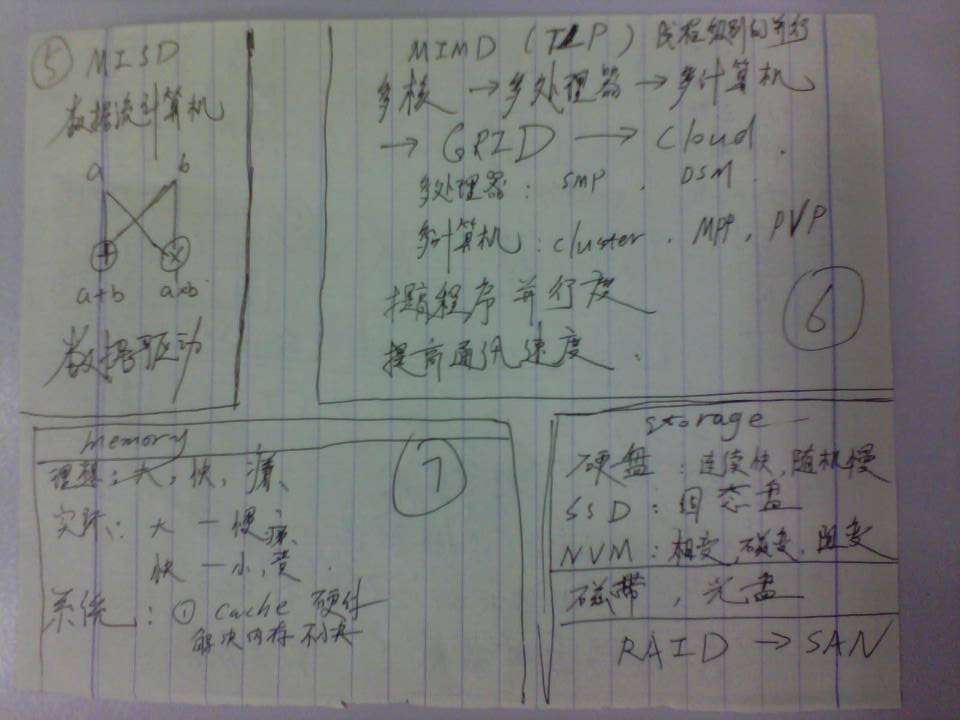 ⑤ MISD
数据流计算机
a b
+ ×
a+b a×b
数据驱动
MIMD (TLP) 线程级别的并行
多核 → 多处理器 → 多计算机
→ GRID → Cloud.
多处理器: SMP. DSM.
多计算机: cluster. MPP, PVP
⑥
提高程序并行度
提高通讯速度.
memory
⑦
理想: 大, 快, 廉
实际: 大 — 慢, 廉
快 — 小, 贵.
系统: ① cache 硬件
解决内存不快
storage
硬盘: 连续快, 随机慢
SSD: 固态盘
NVM: 相变, 磁变, 阻变
磁带, 光盘
RAID → SAN